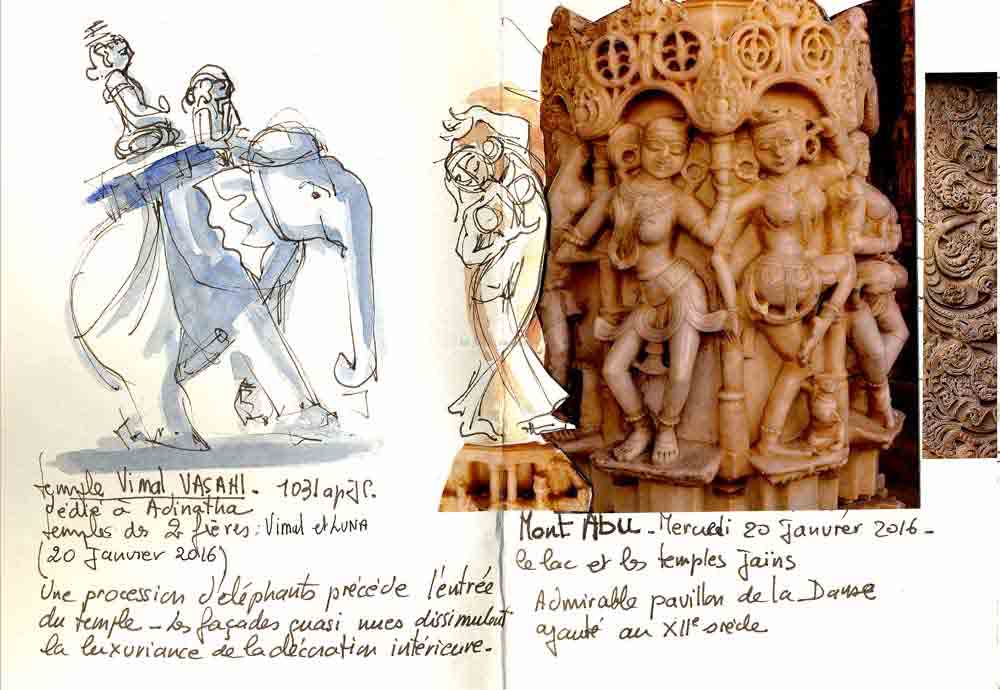 temple Vimal VASAHI. 1031 ap J.C.
dédié à Adinatha
temples des 2 frères : Vimal et LUNA
(20 Janvier 2016)
Une procession d'eléphants précède l'entrée
du temple - Les façades quasi nues dissimulent
la luxuriance de la décoration intérieure.
Mont Abu - Mercredi 20 Janvier 2016 -
le lac et les temples Jaïns
Admirable pavillon de la Danse
ajouté au XIIe siècle